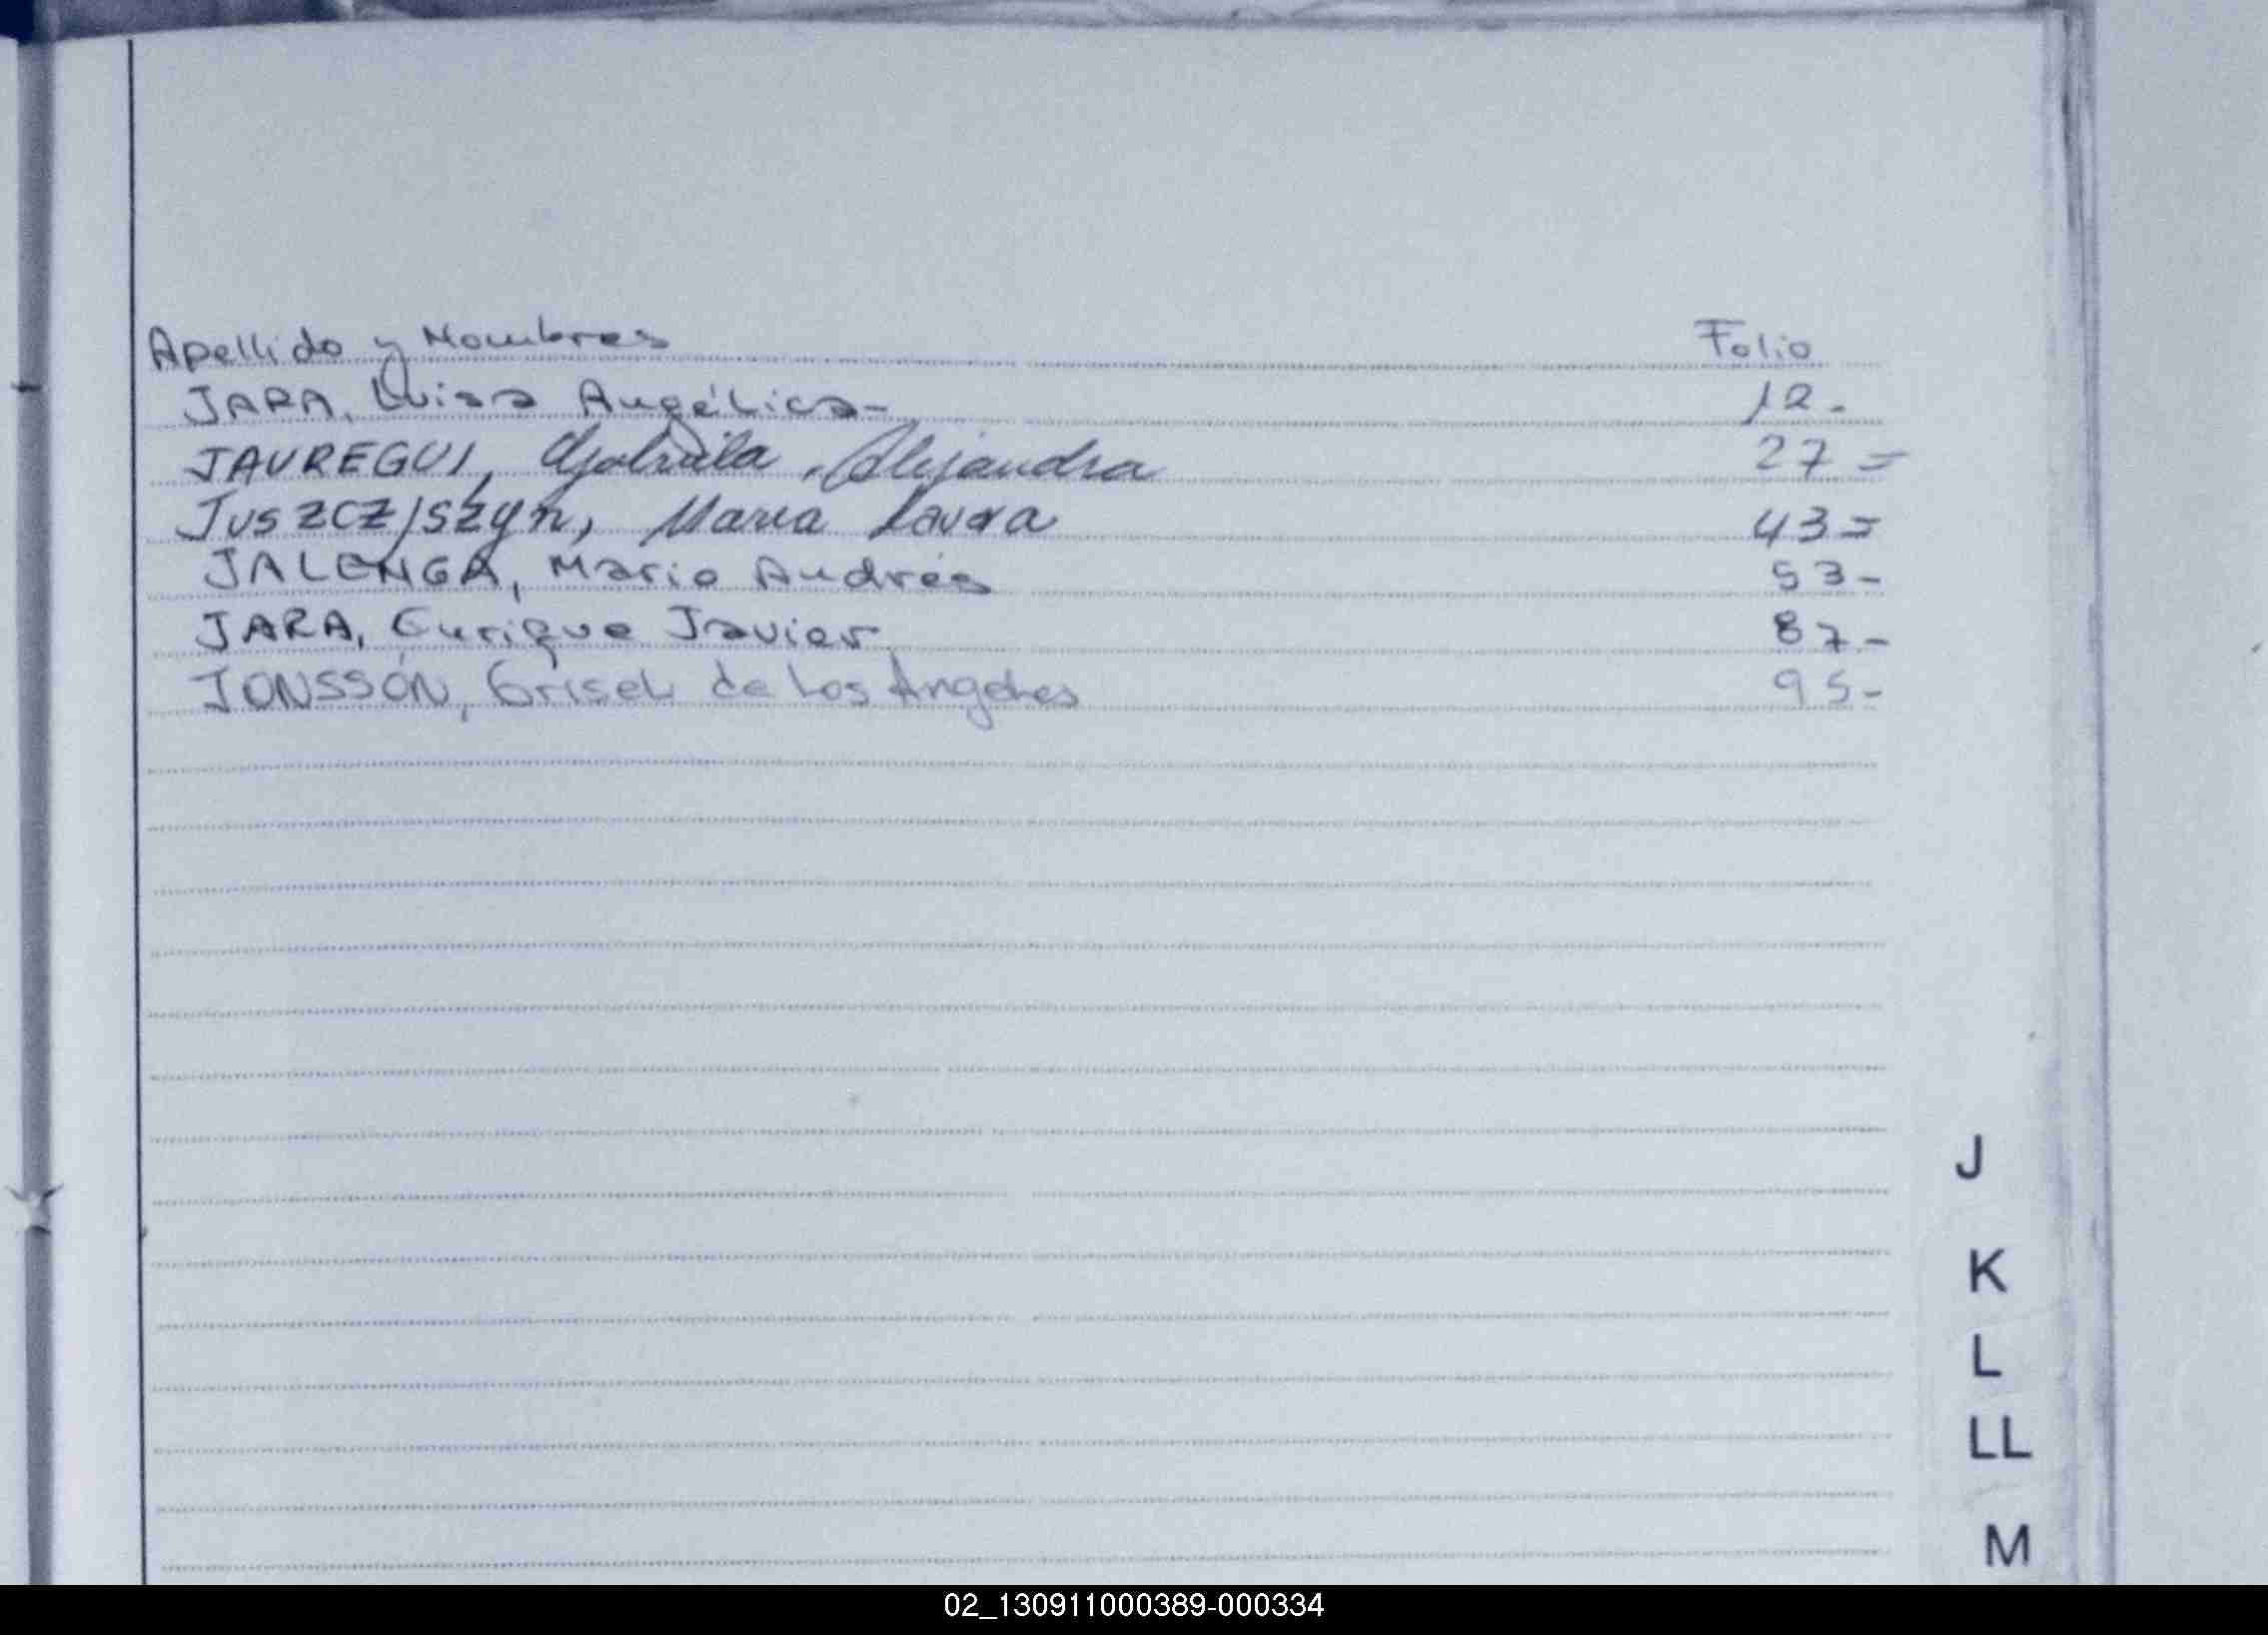 Apellido y Nombres Folio
JARA, Luisa Angélica- 12-
JAUREGUI, Gabriela Alejandra 27=
JUSZCZISZYN, Maria Laura 43=
JALENGA, Mario Andrés 53-
JARA, Enrique Javier 87-
JONSSÓN, Grisel de los Angeles 95-
J
K
L
LL
M
02_130911000389-000334